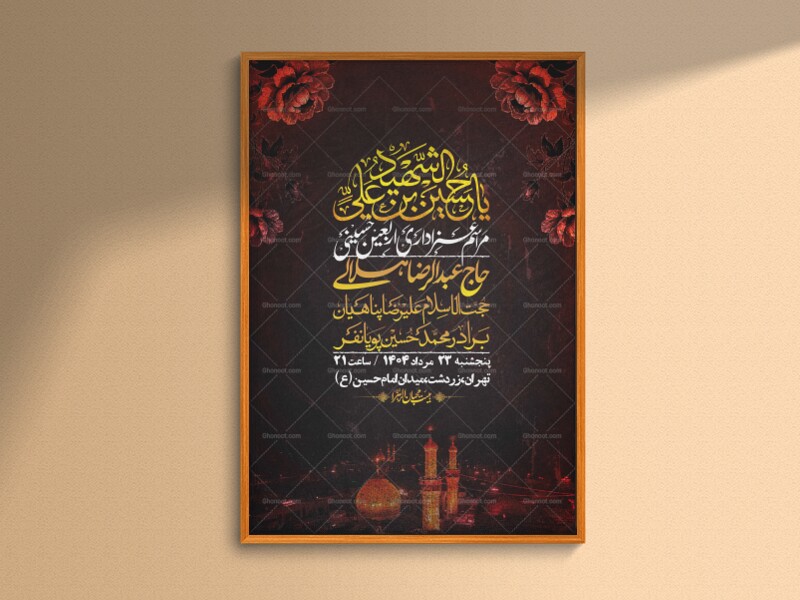 یا حسین بن علی الشهید
مراسم عزاداری اربعین حسینی
حاج عبدالرضا هلالی
حجت الاسلام علیرضا پناهیان
برادر محمدحسین پویانفر
پنجشنبه ۲۳ مرداد ۱۴۰۴ / ساعت ۲۱
تهران،زردشت،میدان امام حسین (ع)
Ghonoot.com